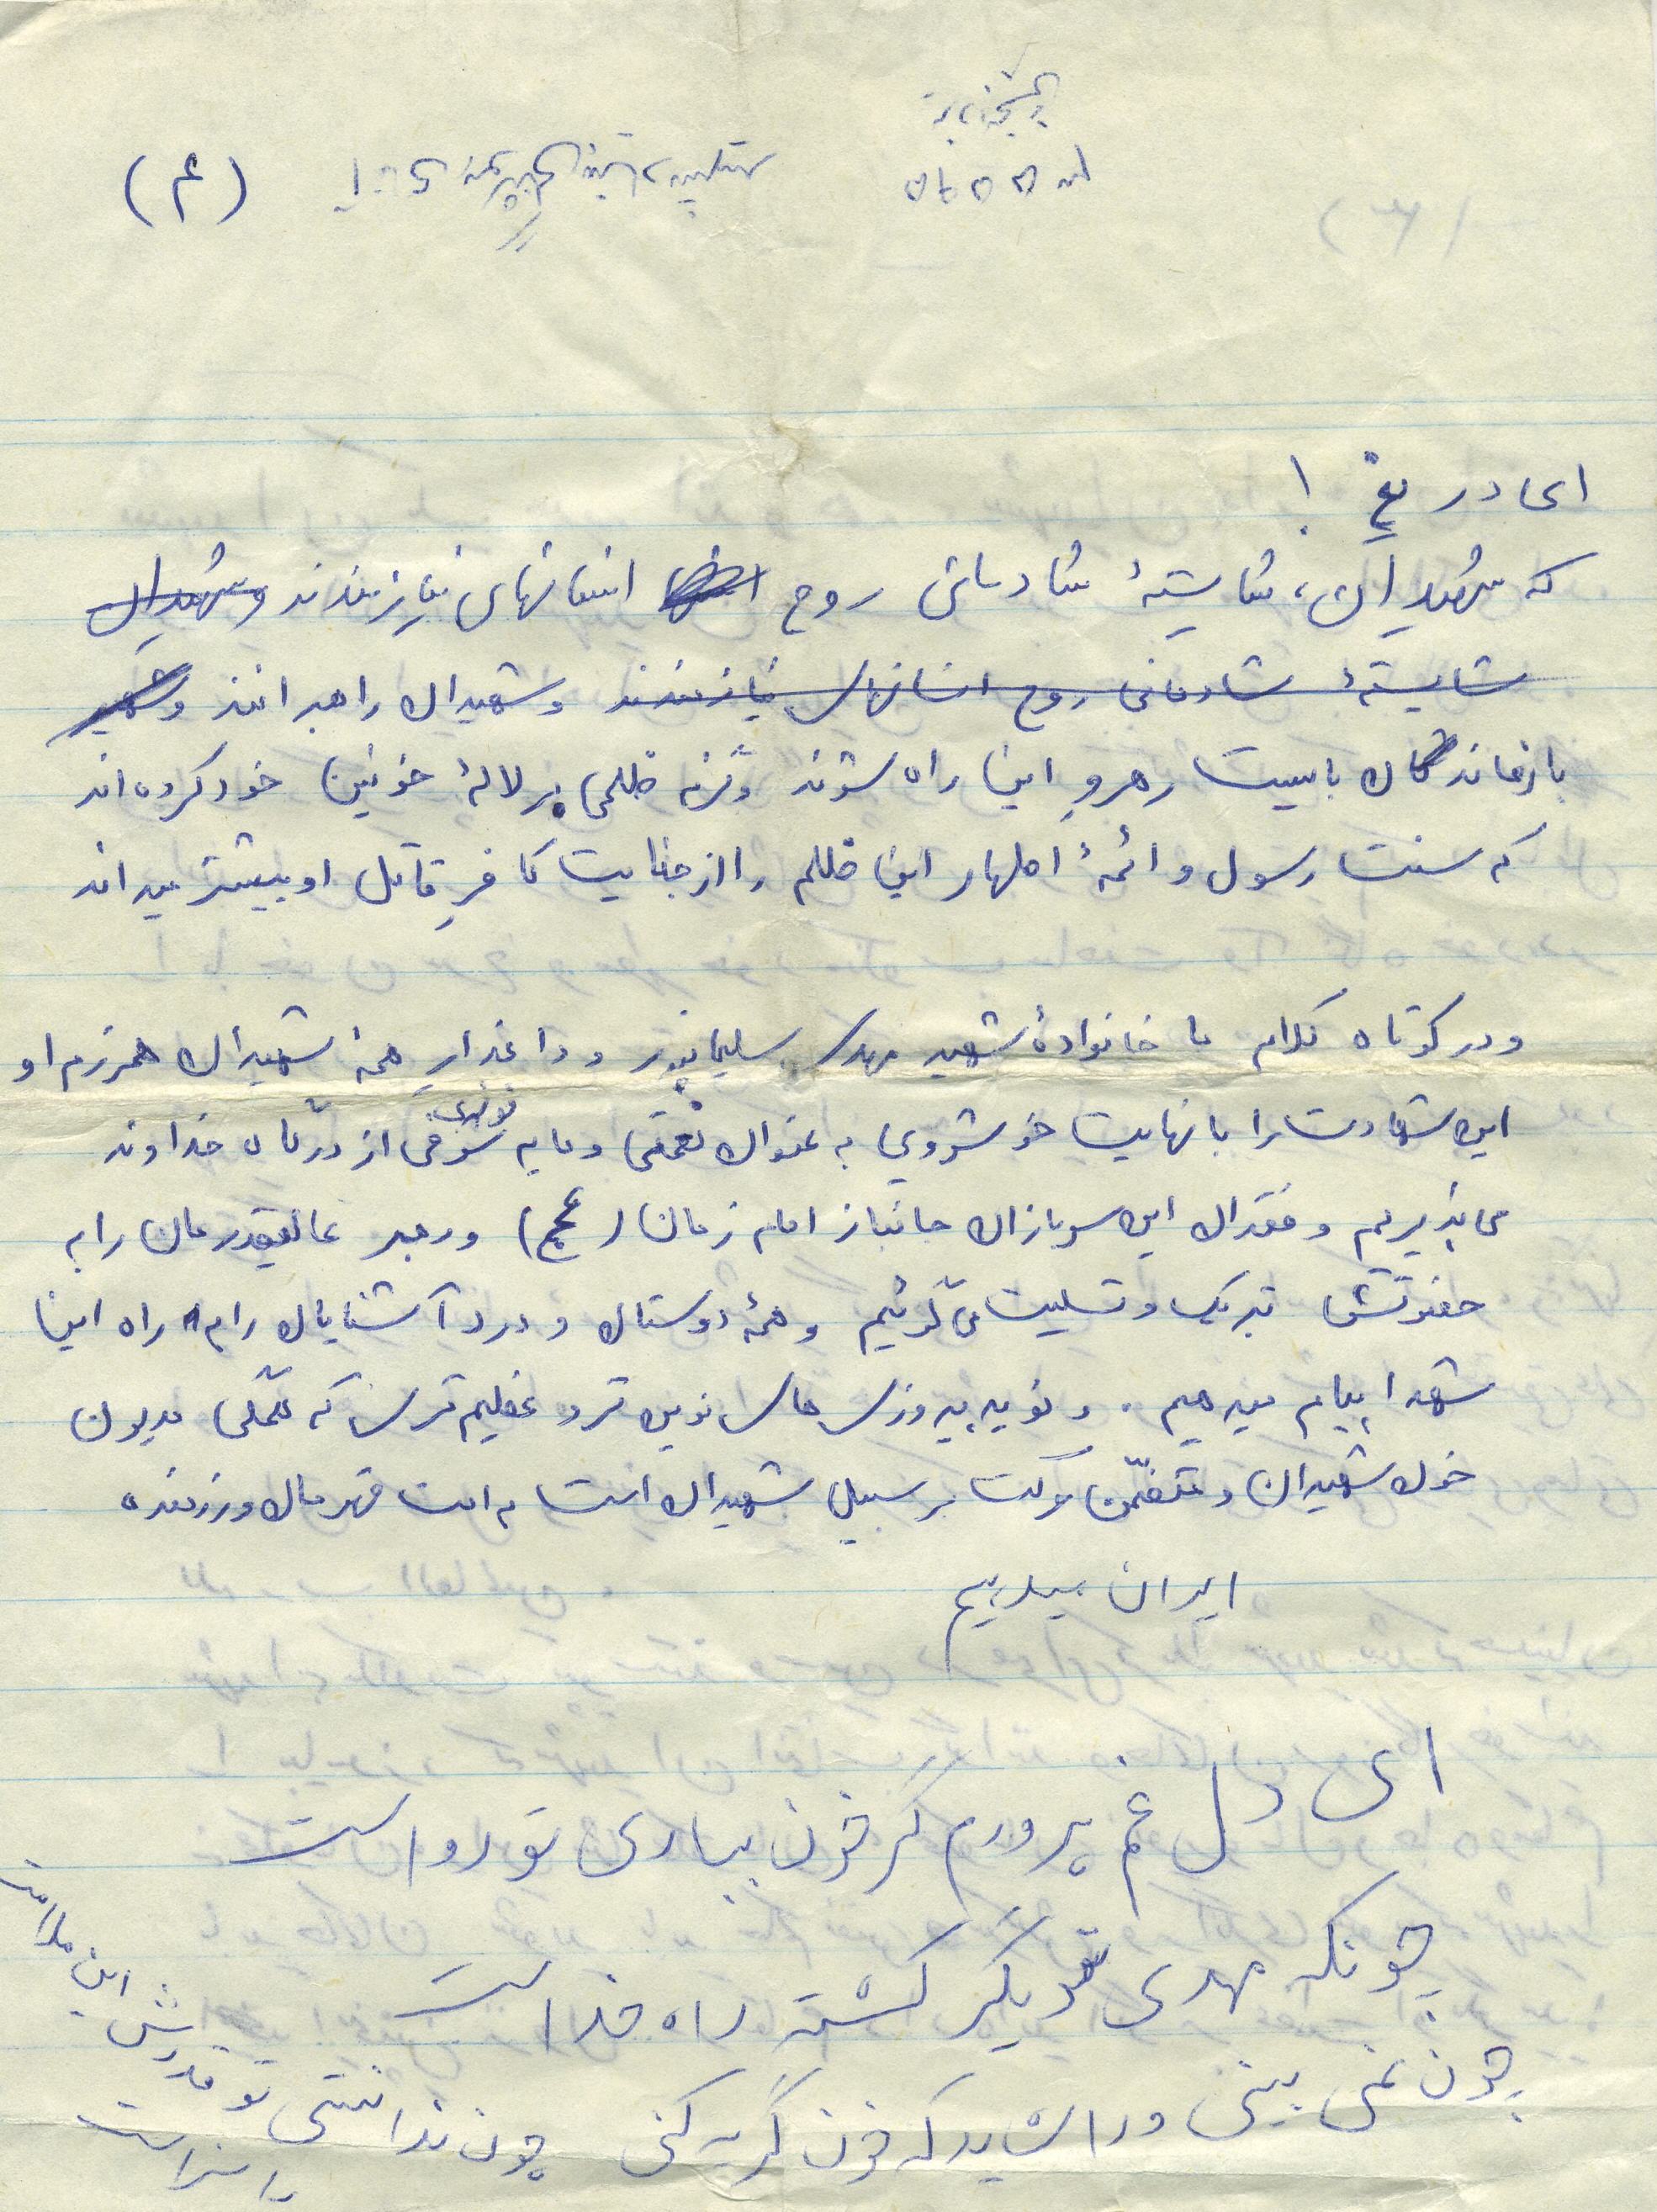 (۴)
ای دریغ !
که شهیدان، شایستهٔ شادمانی روح انسانهای نیازمندند و شهیدان
شایستهٔ شادمانی روح انسانهای نیازمندند و شهیدان راهبرانند و شهید
بازماندگان بایست رهروِ این راه شوند وگرنه ظلمی بر لالهٔ خونین خود کرده‌اند
که سنت رسول و ائمهٔ اطهار این ظلم را از جنایت کافرِ قاتل او بیشتر میداند
و در کوتاه کلام ما خانوادهٔ شهید مهدی سلیمانپور و داغدارِ همهٔ شهیدان همرزم او
این شهادت را با نهایت خوشرویی به عنوان نعمتی و مایه شوقی از درگاه خداوند
می‌پذیریم و فقدان این سربازان جانباز امام زمان (عج) و رهبر عالیقدرمان را به
حضورتش تبریک و تسلیت می‌گوئیم و همهٔ دوستان و درد آشنایان را به راه این
شهدا پیام میدهیم . و نوید پیروزی های نوین تر و عظیم تری که همگی مدیون
خون شهیدان و متضمّن حرکت بر سبیل شهیدان است به امت قهرمان و رزمنده
ایران میدهیم
ای دل غم پرورم گر خون بباری تو رواست
چونکه مهدی تو دیگر کشته راه خداست
چون نمی بینی ورا شاید که خون گریه کنی چون ندانستی تو قدرش این ملامت
را سزاست